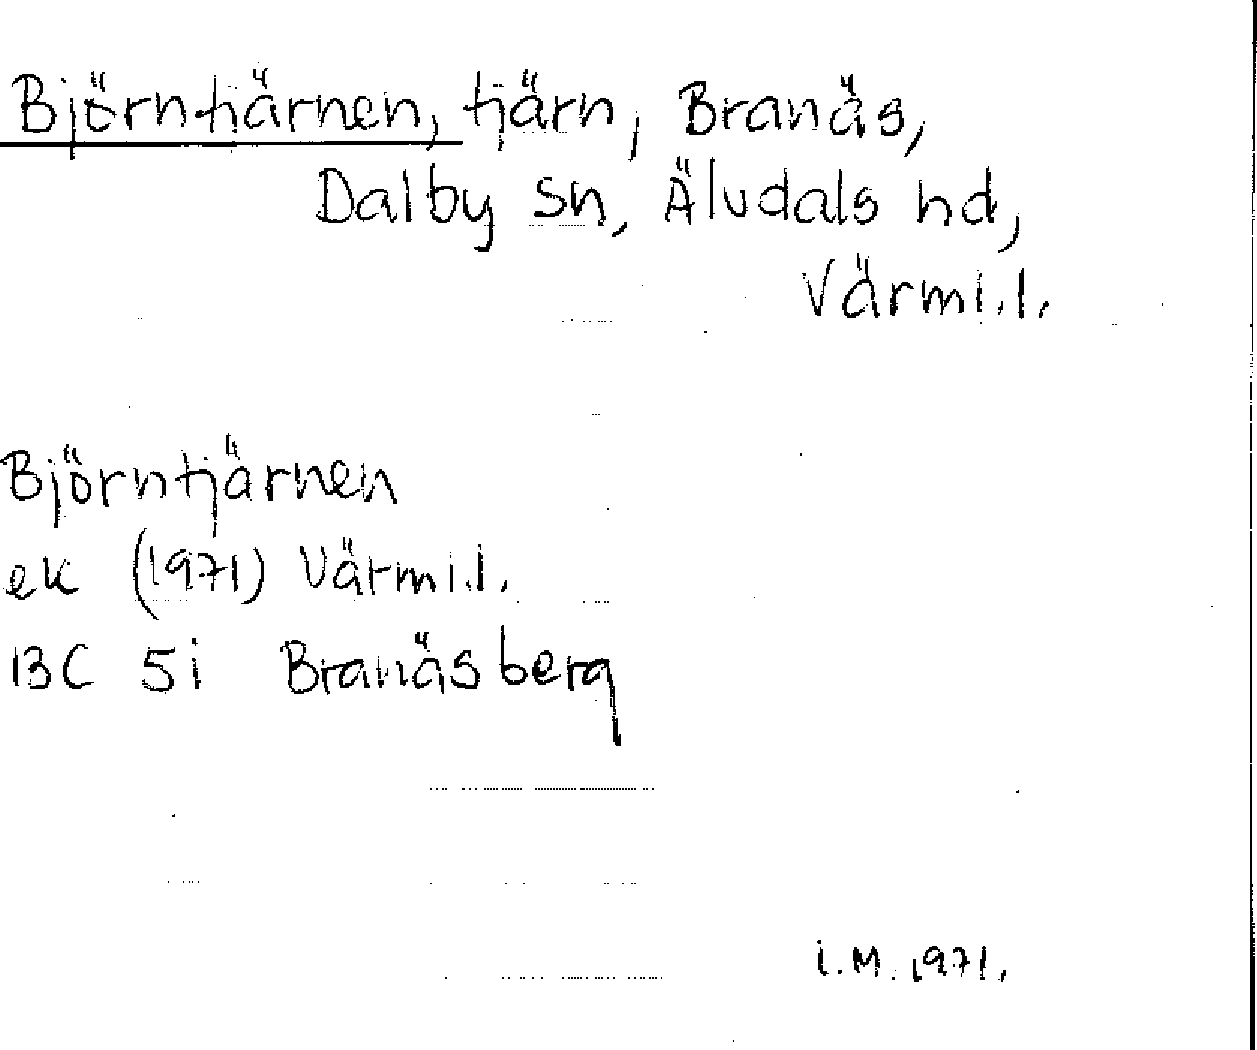 Björntjärnen, tjärn, Branäs,
Dalby sn, Älvdals hd,
Värml.l.
Björntjärnen
ek (1971) Värml.l.
13C 5i Branäsberg
i.M. 1971.